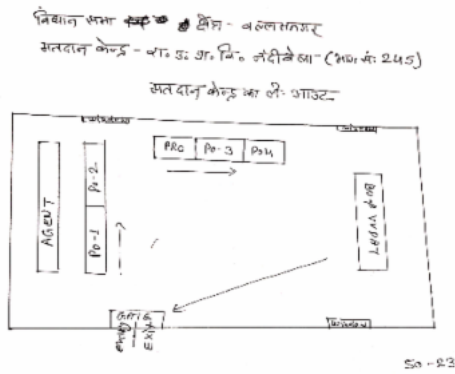 विधान सभा क्षेत्र - वल्लभनगर
मतदान केन्द्र - रा. उ. प्रा. वि. (भाग सं: 245)
मतदान केन्द्र का ले: आउट
window
window
PRO PO-3 PO4
AGENT
PO-2
PO-1
VVPAT
GATE
EXIT
window
SO-23